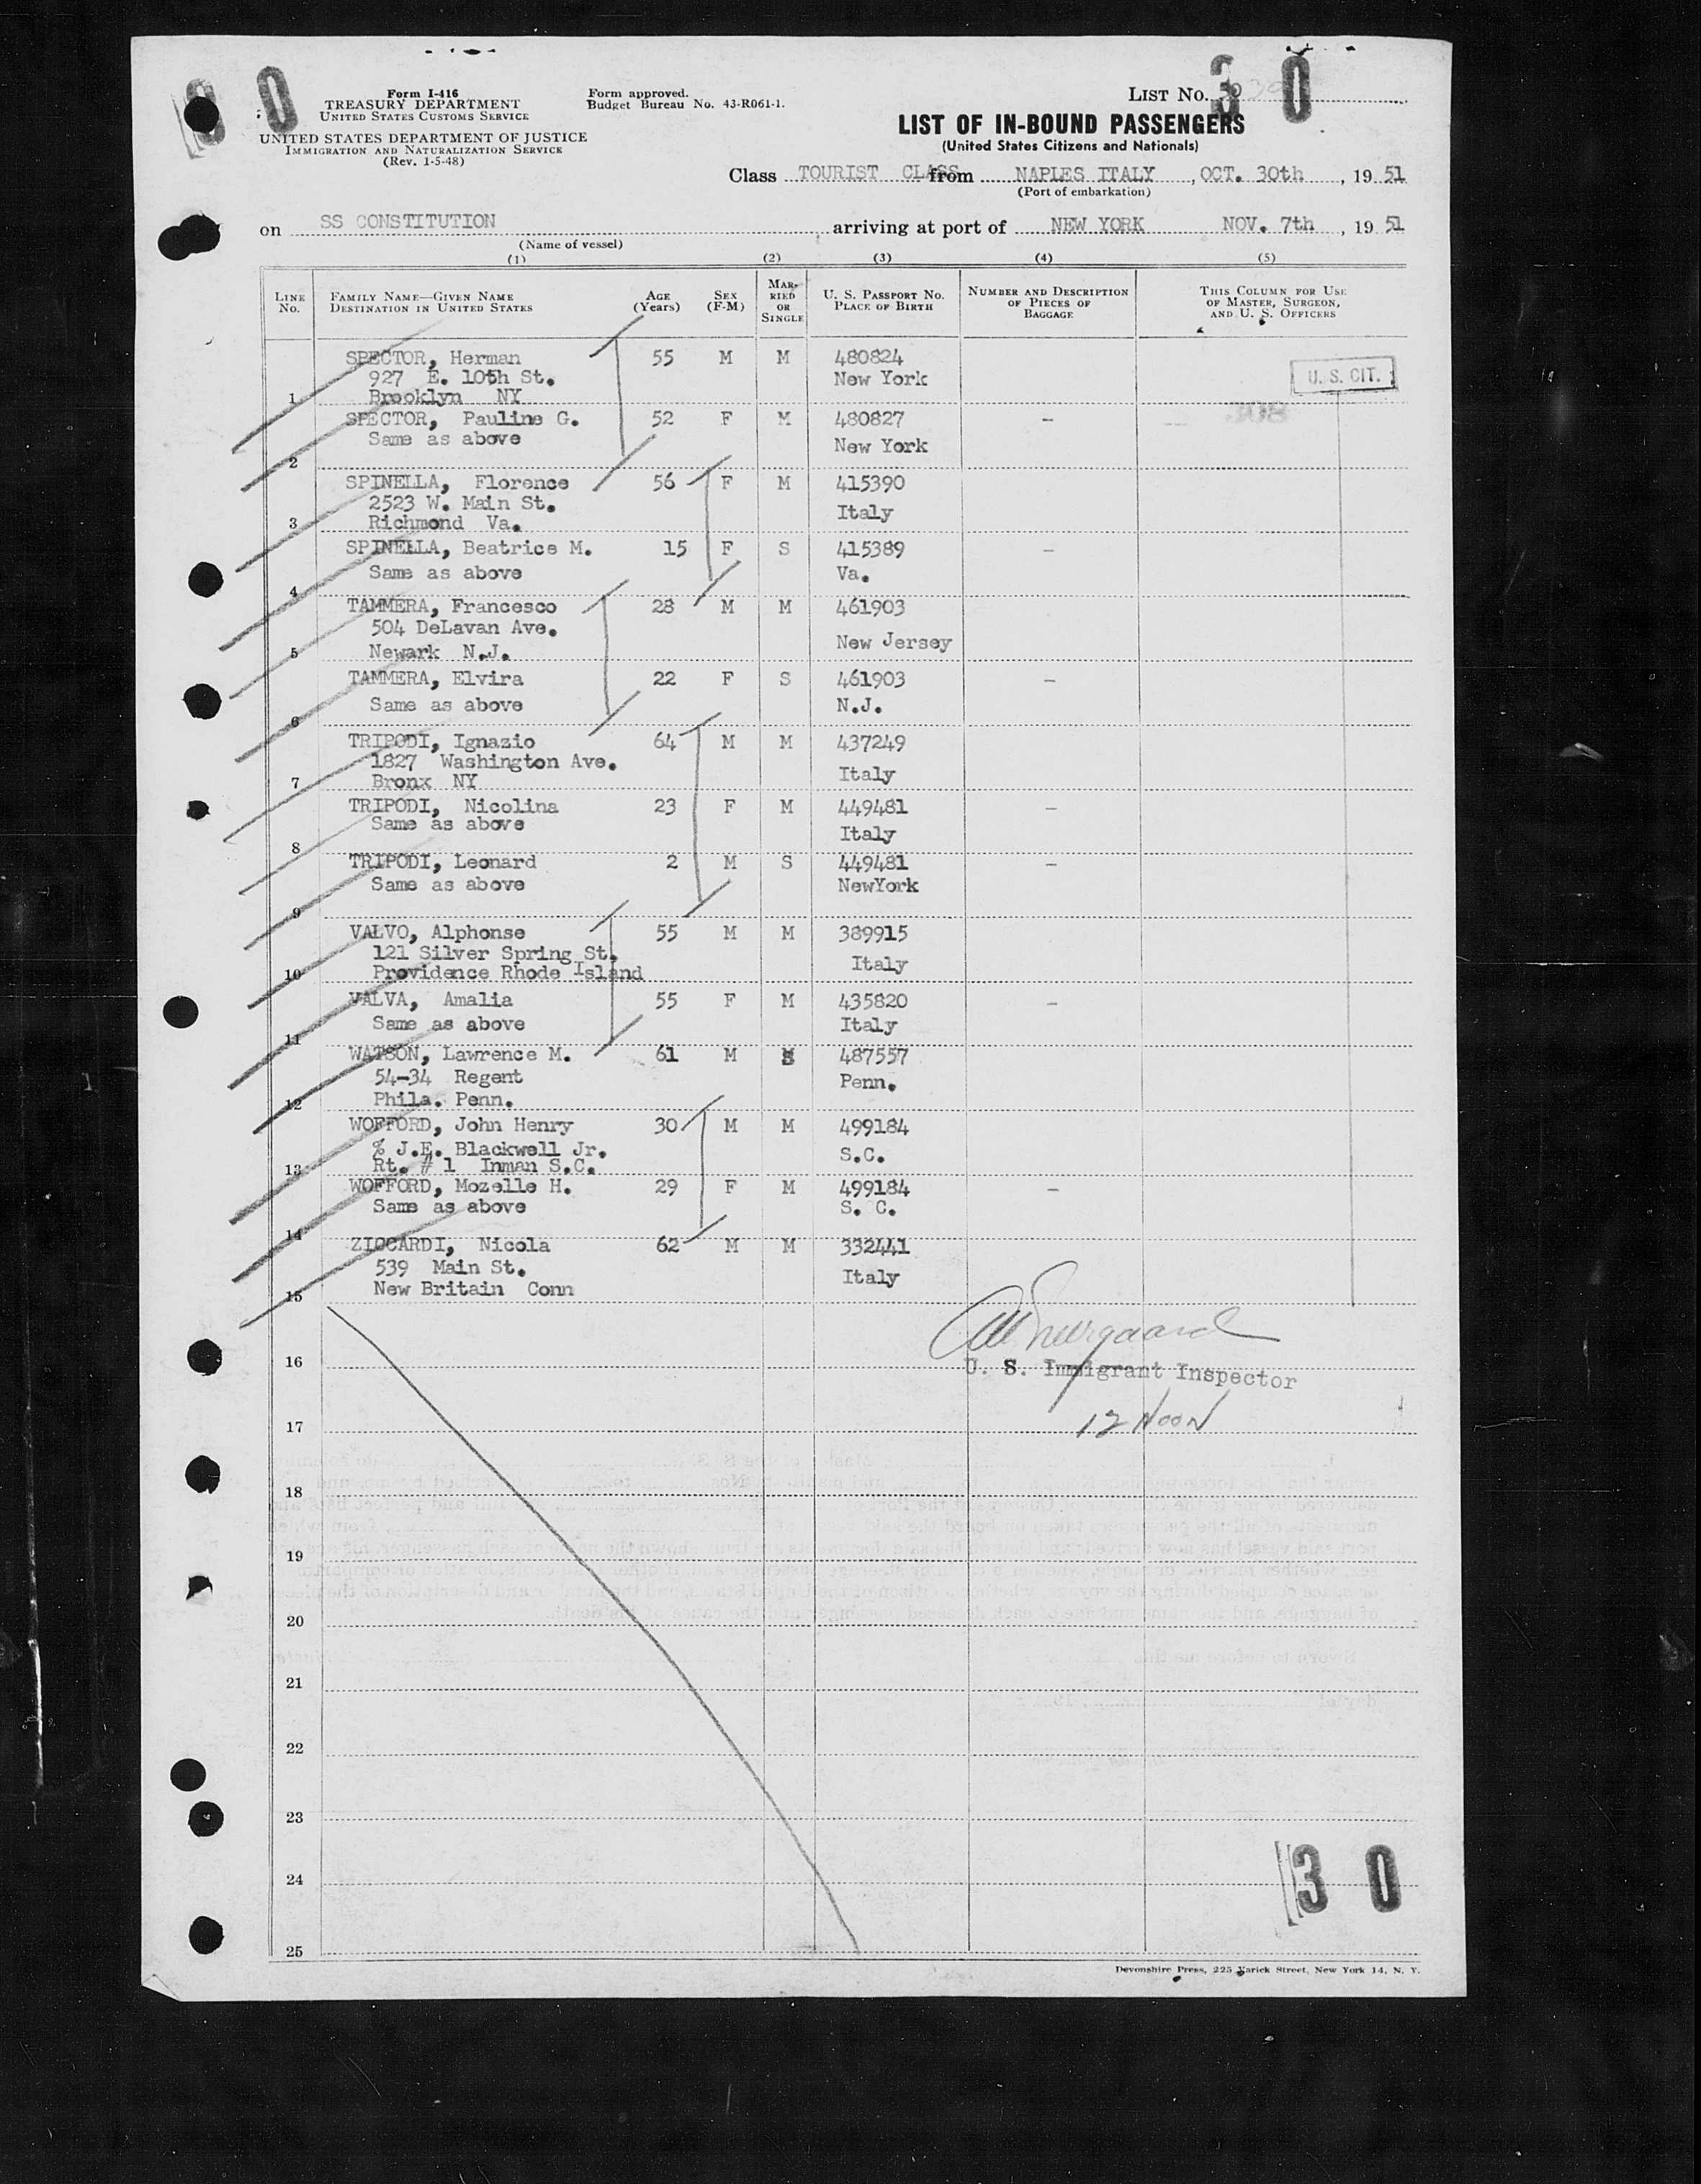 30
Form I-416
TREASURY DEPARTMENT
UNITED STATES CUSTOMS SERVICE
UNITED STATES DEPARTMENT OF JUSTICE
IMMIGRATION AND NATURALIZATION SERVICE
(Rev. 1-5-48)
Form approved.
Budget Bureau No. 43-R061-1.
LIST NO. 30
LIST OF IN-BOUND PASSENGERS
(United States Citizens and Nationals)
Class TOURIST CLASS from NAPLES ITALY, OCT. 30th, 19 51
(Port of embarkation)
on SS CONSTITUTION arriving at port of NEW YORK NOV. 7th, 19 51
(Name of vessel)
(1) (2) (3) (4) (5)
LINE NO. FAMILY NAME—GIVEN NAME DESTINATION IN UNITED STATES AGE (Years) SEX (F-M) MARRIED OR SINGLE U. S. PASSPORT NO. PLACE OF BIRTH NUMBER AND DESCRIPTION OF PIECES OF BAGGAGE THIS COLUMN FOR USE OF MASTER, SURGEON, AND U. S. OFFICERS
SPECTOR, Herman 55 M M 480824
927 E. 10th St. New York U. S. CIT.
1 Brooklyn NY
SPECTOR, Pauline G. 52 F M 480827 -
Same as above New York
2
SPINELLA, Florence 56 F M 415390
2523 W. Main St. Italy
3 Richmond Va.
SPINELLA, Beatrice M. 15 F S 415389 -
Same as above Va.
4
TAMMERA, Francesco 28 M M 461903
504 DeLavan Ave. New Jersey
5 Newark N.J.
TAMMERA, Elvira 22 F S 461903 -
Same as above N.J.
6
TRIPODI, Ignazio 64 M M 437249
1827 Washington Ave. Italy
7 Bronx NY
TRIPODI, Nicolina 23 F M 449481 -
Same as above Italy
8
TRIPODI, Leonard 2 M S 449481 -
Same as above NewYork
9
VALVO, Alphonse 55 M M 389915
121 Silver Spring St. Italy
10 Providence Rhode Island
VALVA, Amalia 55 F M 435820 -
Same as above Italy
11
WATSON, Lawrence M. 61 M S 487557
54-34 Regent Penn.
12 Phila. Penn.
WOFFORD, John Henry 30 M M 499184
% J.E. Blackwell Jr. S.C.
13 Rt. #1 Inman S.C.
WOFFORD, Mozelle H. 29 F M 499184 -
Same as above S. C.
14
ZICCARDI, Nicola 62 M M 332441
539 Main St. Italy
15 New Britain Conn
16
U. S. Immigrant Inspector
17 12 NOON
18
19
20
21
22
23
24
30
25
Devonshire Press, 225 Varick Street, New York 14, N. Y.